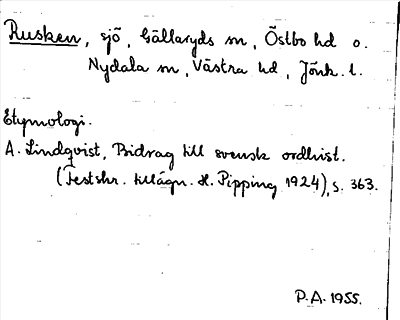 Rusken, sjö, Gällaryds sn, Östbo hd o.
Nydala sn, Västra hd, Jönk. l.
Etymologi.
A. Lindqvist, Bidrag till svensk ordhist.
(Festskr. tillägn. H. Pipping 1924), s. 363.
P.A. 1955.